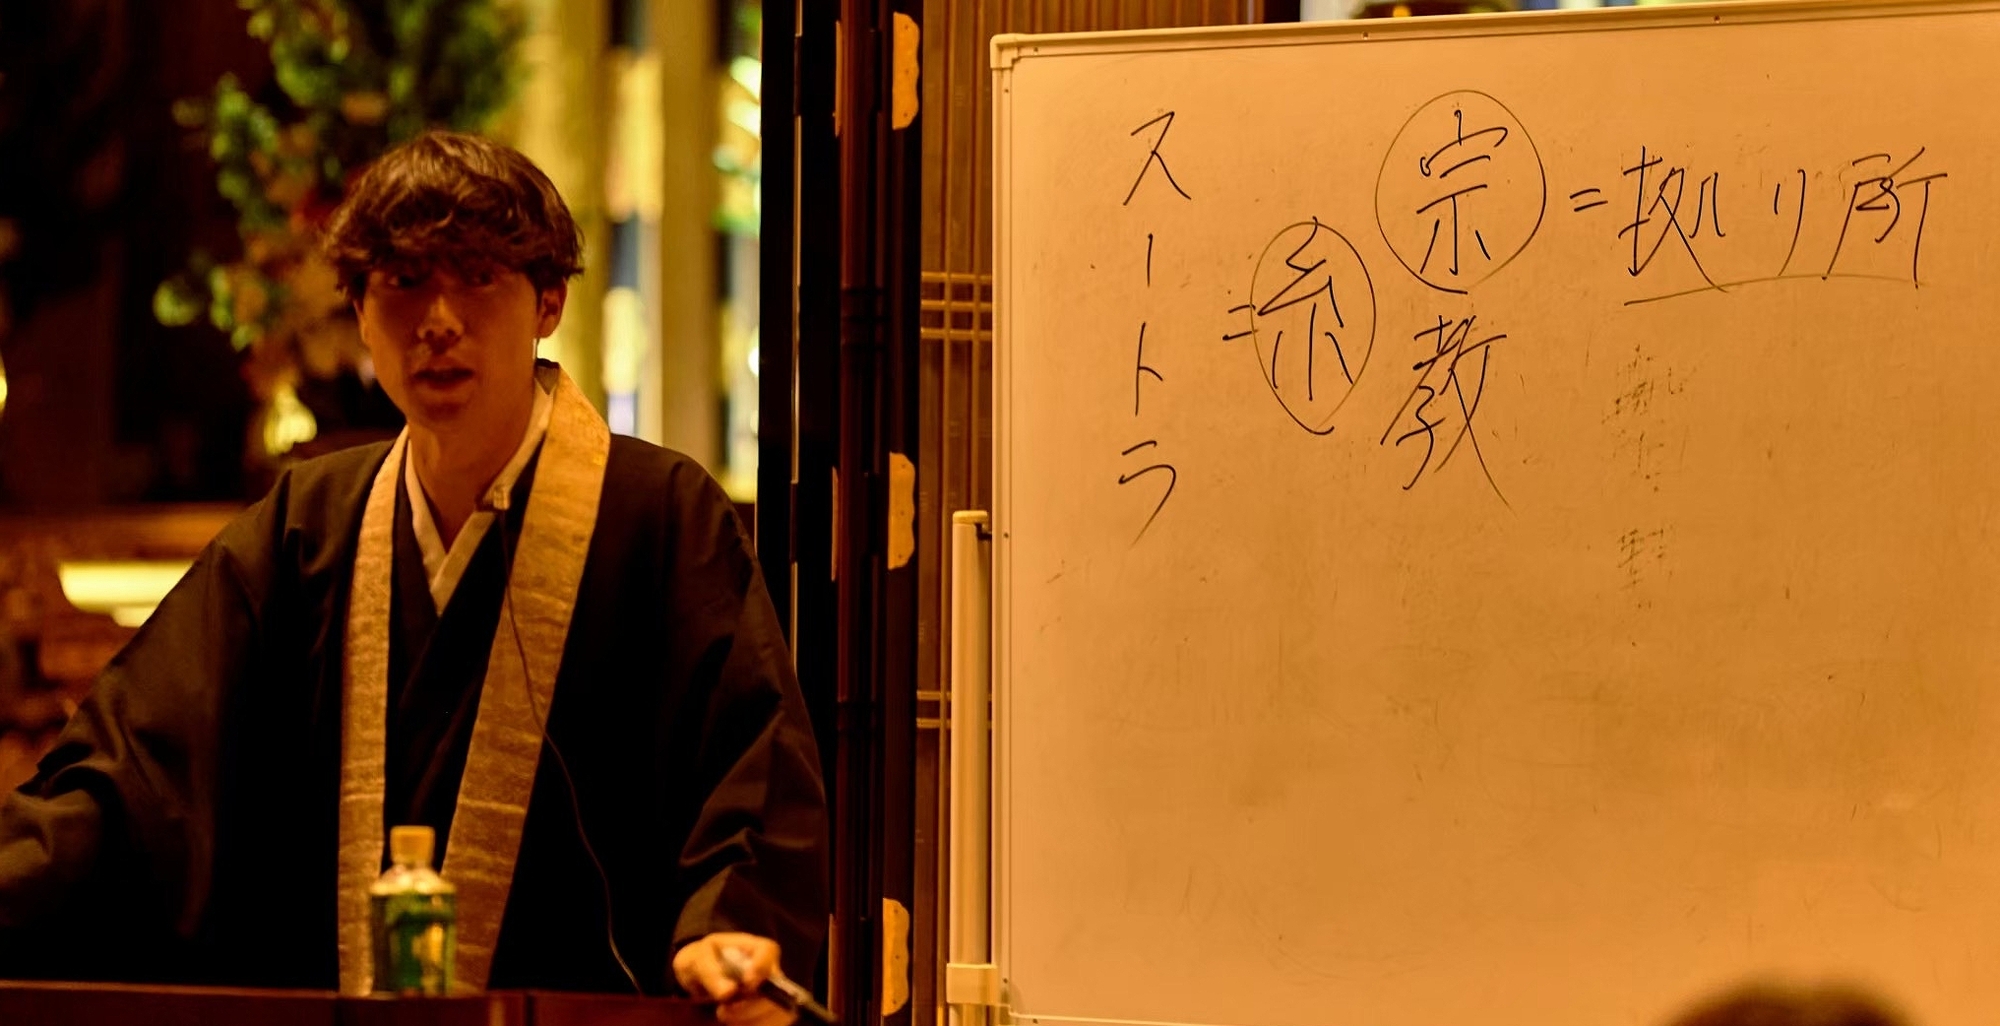 宗教
=拠り所
スートラ
=糸